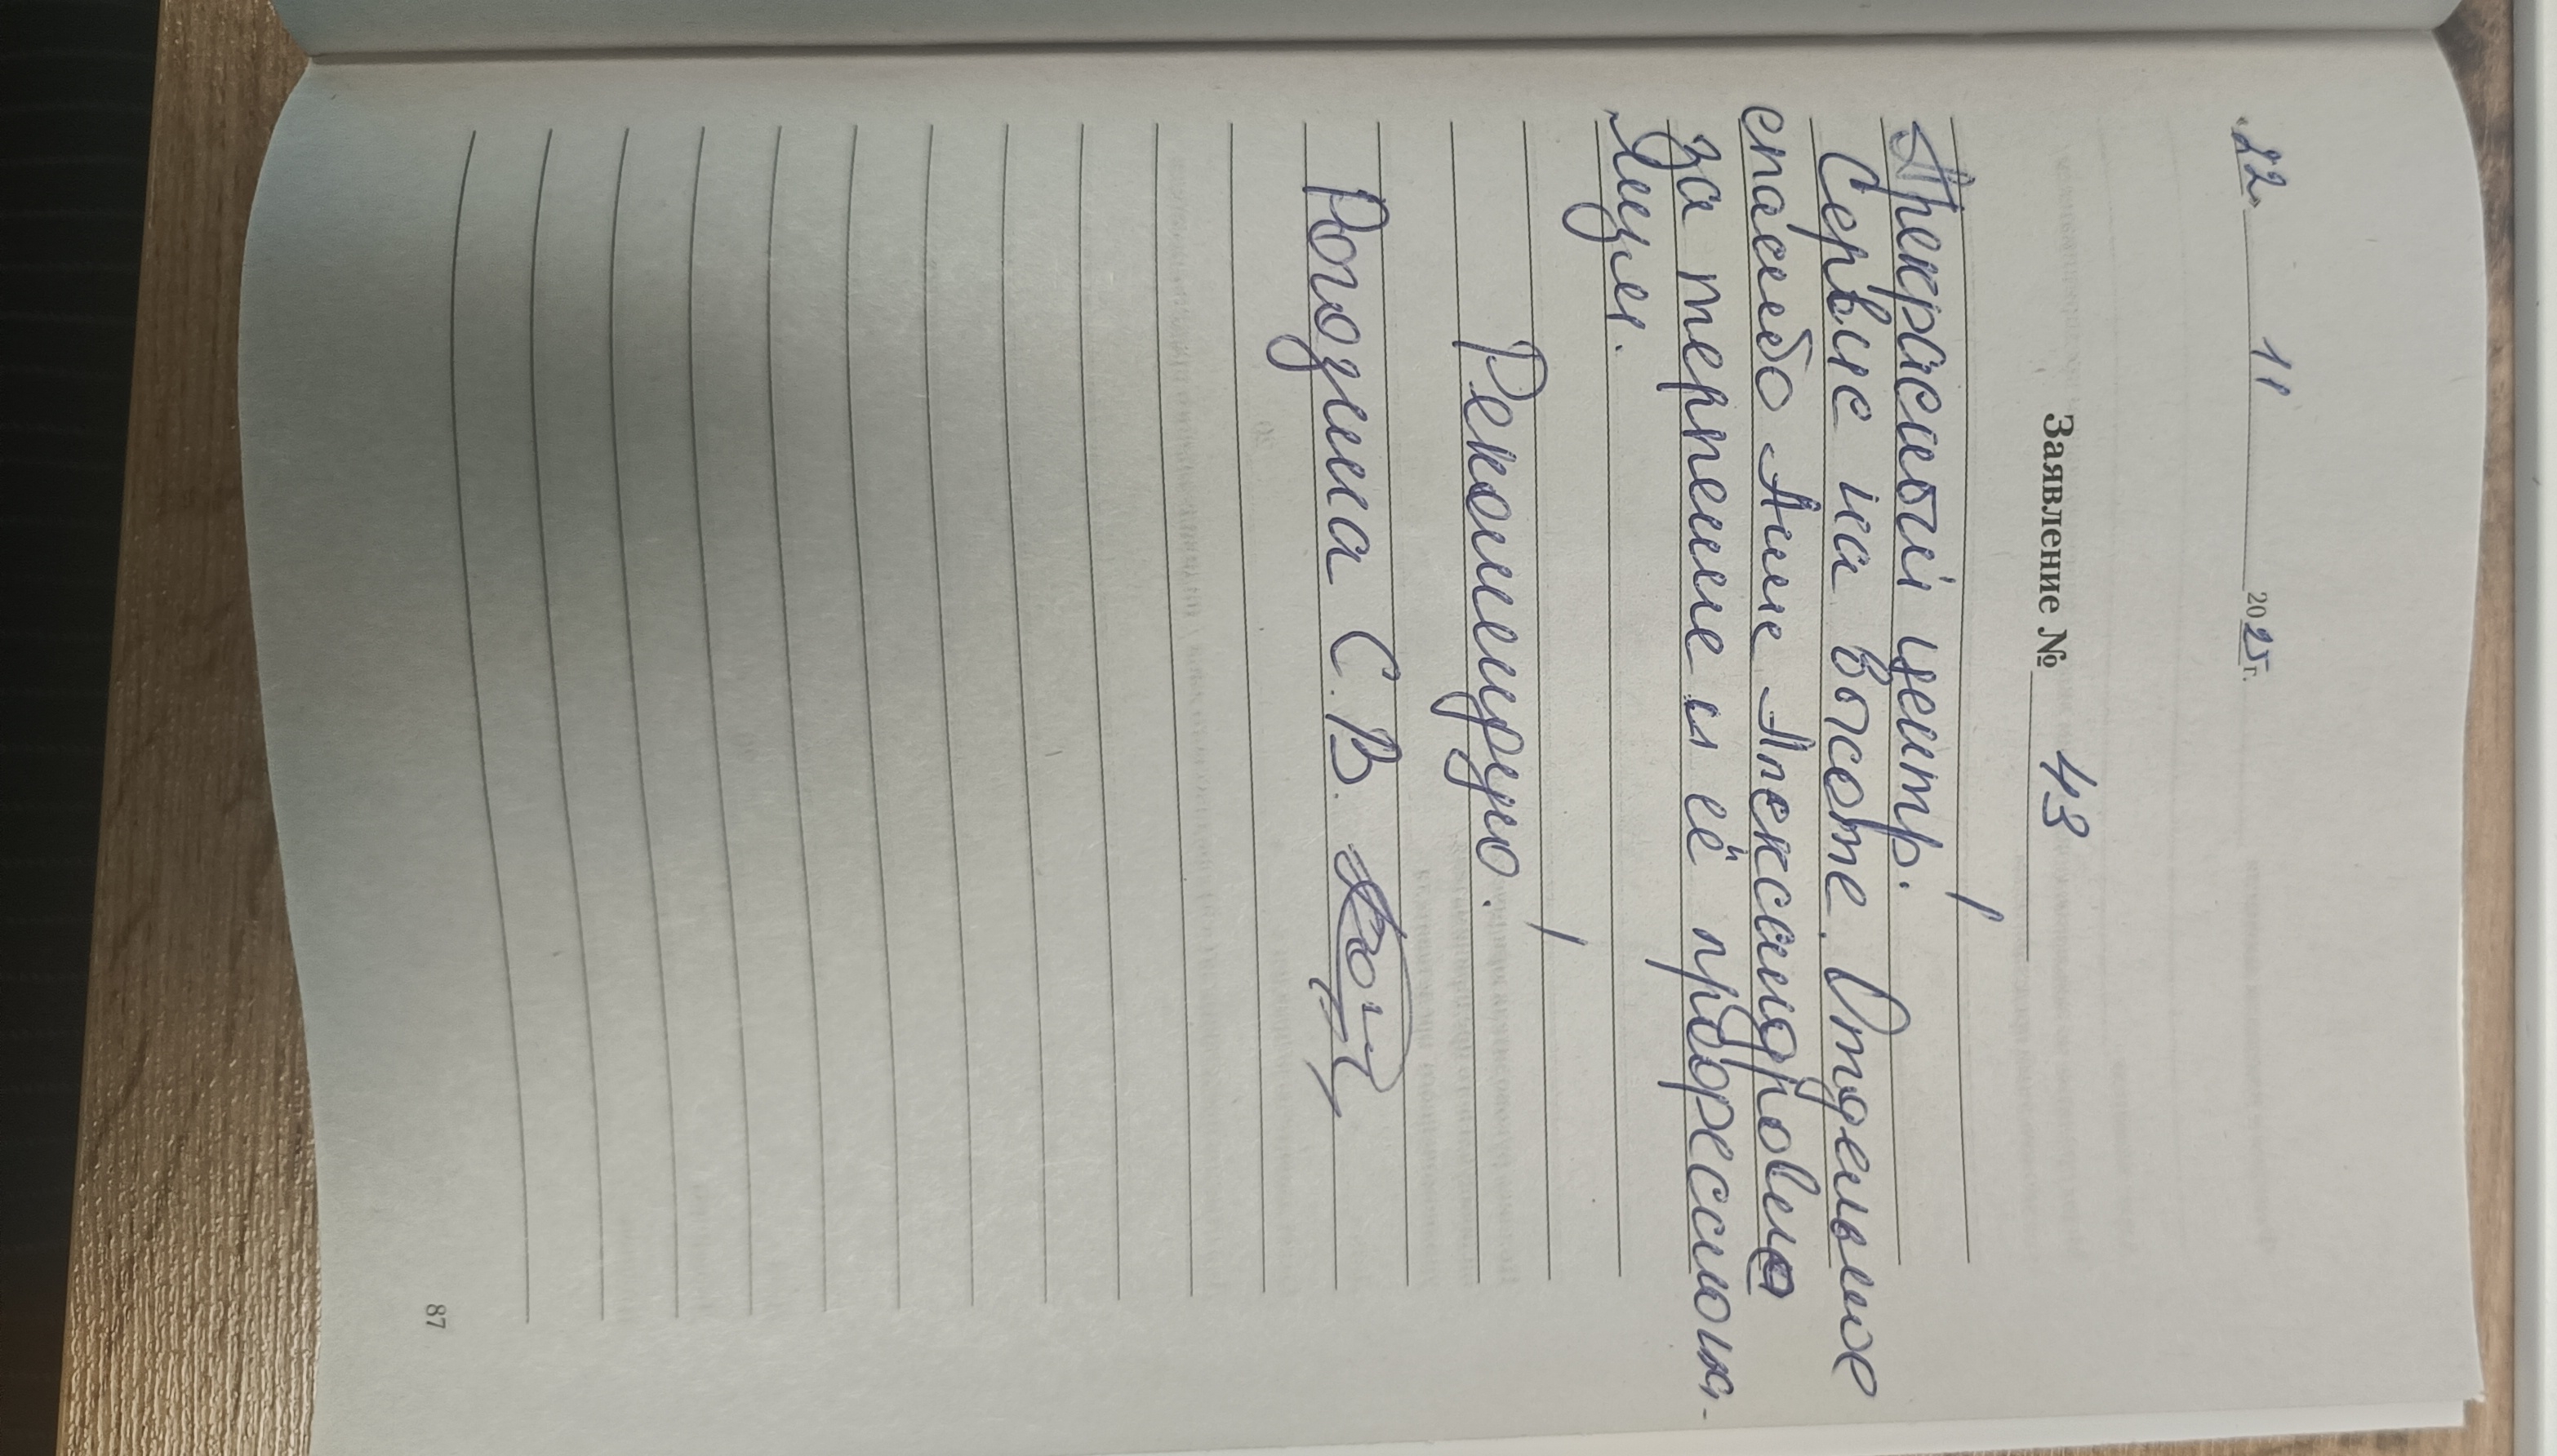 "22" 11 2025г.
Заявление № 43
Прекрасный центр!
Сервис на высоте. Отдельное
спасибо Анне Александровне
за терпение и её профессиона-
лизм.
Рекомендую!
Рогодина С.В.
87